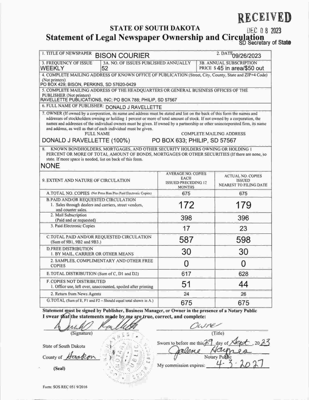 RECEIVED
DEC 08 2023
SD Secretary of State
STATE OF SOUTH DAKOTA
Statement of Legal Newspaper Ownership and Circulation
1. TITLE OF NEWSPAPER BISON COURIER
2. DATE 09/26/2023
3. FREQUENCY OF ISSUE
WEEKLY
3A. NO. OF ISSUES PUBLISHED ANNUALLY
52
3B. ANNUAL SUBSCRIPTION
PRICE $ 45 in area/$50 out
4. COMPLETE MAILING ADDRESS OF KNOWN OFFICE OF PUBLICATION (Street, City, County, State and ZIP+4 Code)
(Not printers)
PO BOX 429; BISON, PERKINS, SD 57620-0429
5. COMPLETE MAILING ADDRESS OF THE HEADQUARTERS OR GENERAL BUSINESS OFFICES OF THE
PUBLISHER (Not printers)
RAVELLETTE PUBLICATIONS, INC; PO BOX 788; PHILIP, SD 57567
6. FULL NAME OF PUBLISHER: DONALD J RAVELLETTE
7. OWNER (If owned by a corporation, its name and address must be stated and list on the back of this form the names and
addresses of stockholders owning or holding 1 percent or more of total amount of stock. If not owned by a corporation, the
names and addresses of the individual owners must be given. If owned by a partnership or other unincorporated firm, its name
and address, as well as that of each individual must be given.
FULL NAME COMPLETE MAILING ADDRESS
DONALD J RAVELLETTE (100%) PO BOX 863; PHILIP, SD 57567
8. KNOWN BONDHOLDERS, MORTGAGES, AND OTHER SECURITY HOLDERS OWNING OR HOLDING 1
PERCENT OR MORE OF TOTAL AMOUNT OF BONDS, MORTGAGES OR OTHER SECURITIES (If there are none, so
state. If more space is needed, list on back of this form.
NONE
9. EXTENT AND NATURE OF CIRCULATION
AVERAGE NO. COPIES
EACH
ISSUED PRECEDING 12
MONTHS
ACTUAL NO. COPIES
ISSUED
NEAREST TO FILING DATE
A. TOTAL NO. COPIES 675 675
B. PAID AND/OR REQUESTED CIRCULATION
1. Sales through dealers and carriers, street vendors,
and counter sales. 172 179
2. Mail Subscription
(Paid and or requested) 398 396
3. Paid Electronic Copies 17 23
C. TOTAL PAID AND/OR REQUESTED CIRCULATION
(Sum of 9B1, 9B2 and 9B3.) 587 598
D. FREE DISTRIBUTION
1. BY MAIL, CARRIER OR OTHER MEANS 30 30
2. SAMPLES, COMPLIMENTARY AND OTHER FREE
COPIES 0 0
E. TOTAL DISTRIBUTION (Sum of C, D1 and D2) 617 628
F. COPIES NOT DISTRIBUTED
1. Office use, left over, unaccounted, spoiled after printing 51 44
2. Return from News Agents 24 26
G. TOTAL (Sum of E, F1 and F2 – Should equal total shown in A.) 675 675
Statement must be signed by Publisher, Business Manager, or Owner in the presence of a Notary Public
I swear that the statements made by me are true, correct, and complete:
Owner
(Signature) (Title)
State of South Dakota
Sworn to before me this 29 day of Sept. 2023
County of Haakon
Notary Public
(Seal)
My commission expires: 4-3-2027
Form: SOS REC 051 9/2016